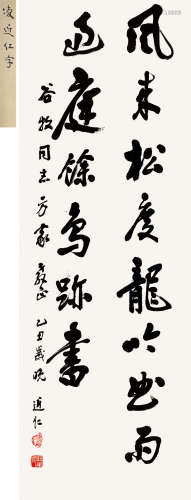 風来松度龍吟曲雨
過庭餘鳥跡書
谷牧同志方家教正 乙丑歲晚 近仁
凌近仁字